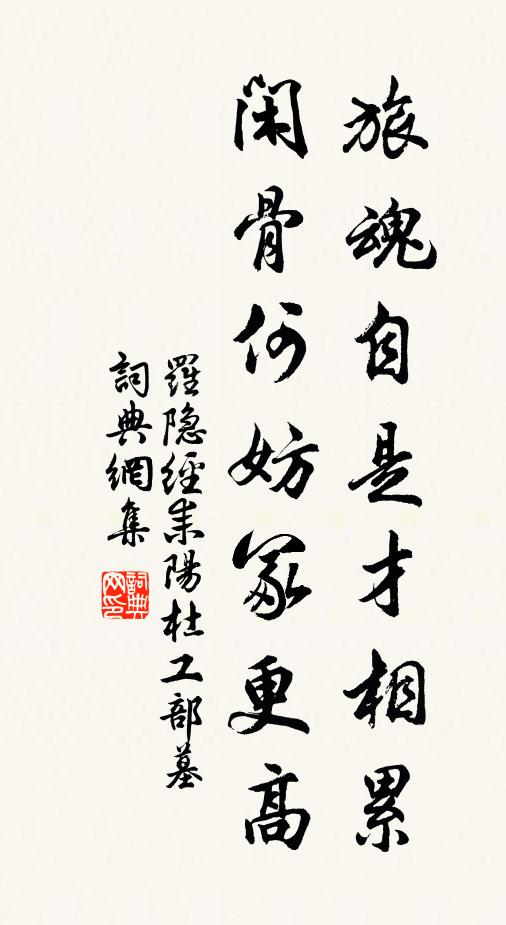 旅魂自是才相累
閑骨何妨冢更高
羅隱經耒陽杜工部墓
詞典網集
詞典网印